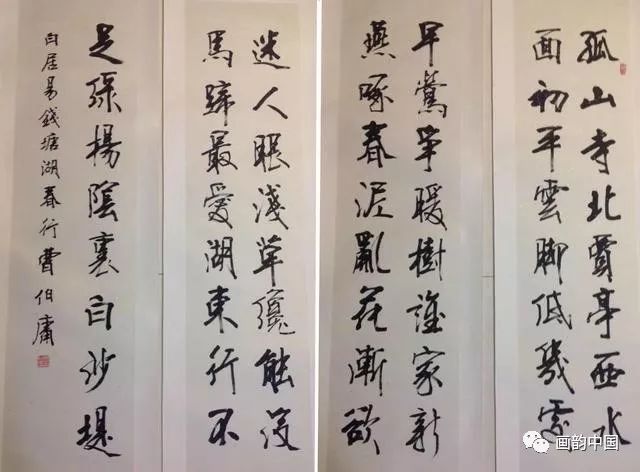 孤山寺北賈亭西水
面初平雲脚低幾處
早鶯争暖樹誰家新
燕啄春泥亂花漸欲
迷人眼淺草纔能没
馬蹄最愛湖東行不
足緑楊陰裏白沙堤
白居易錢塘湖春行曹伯庸
画韵中国